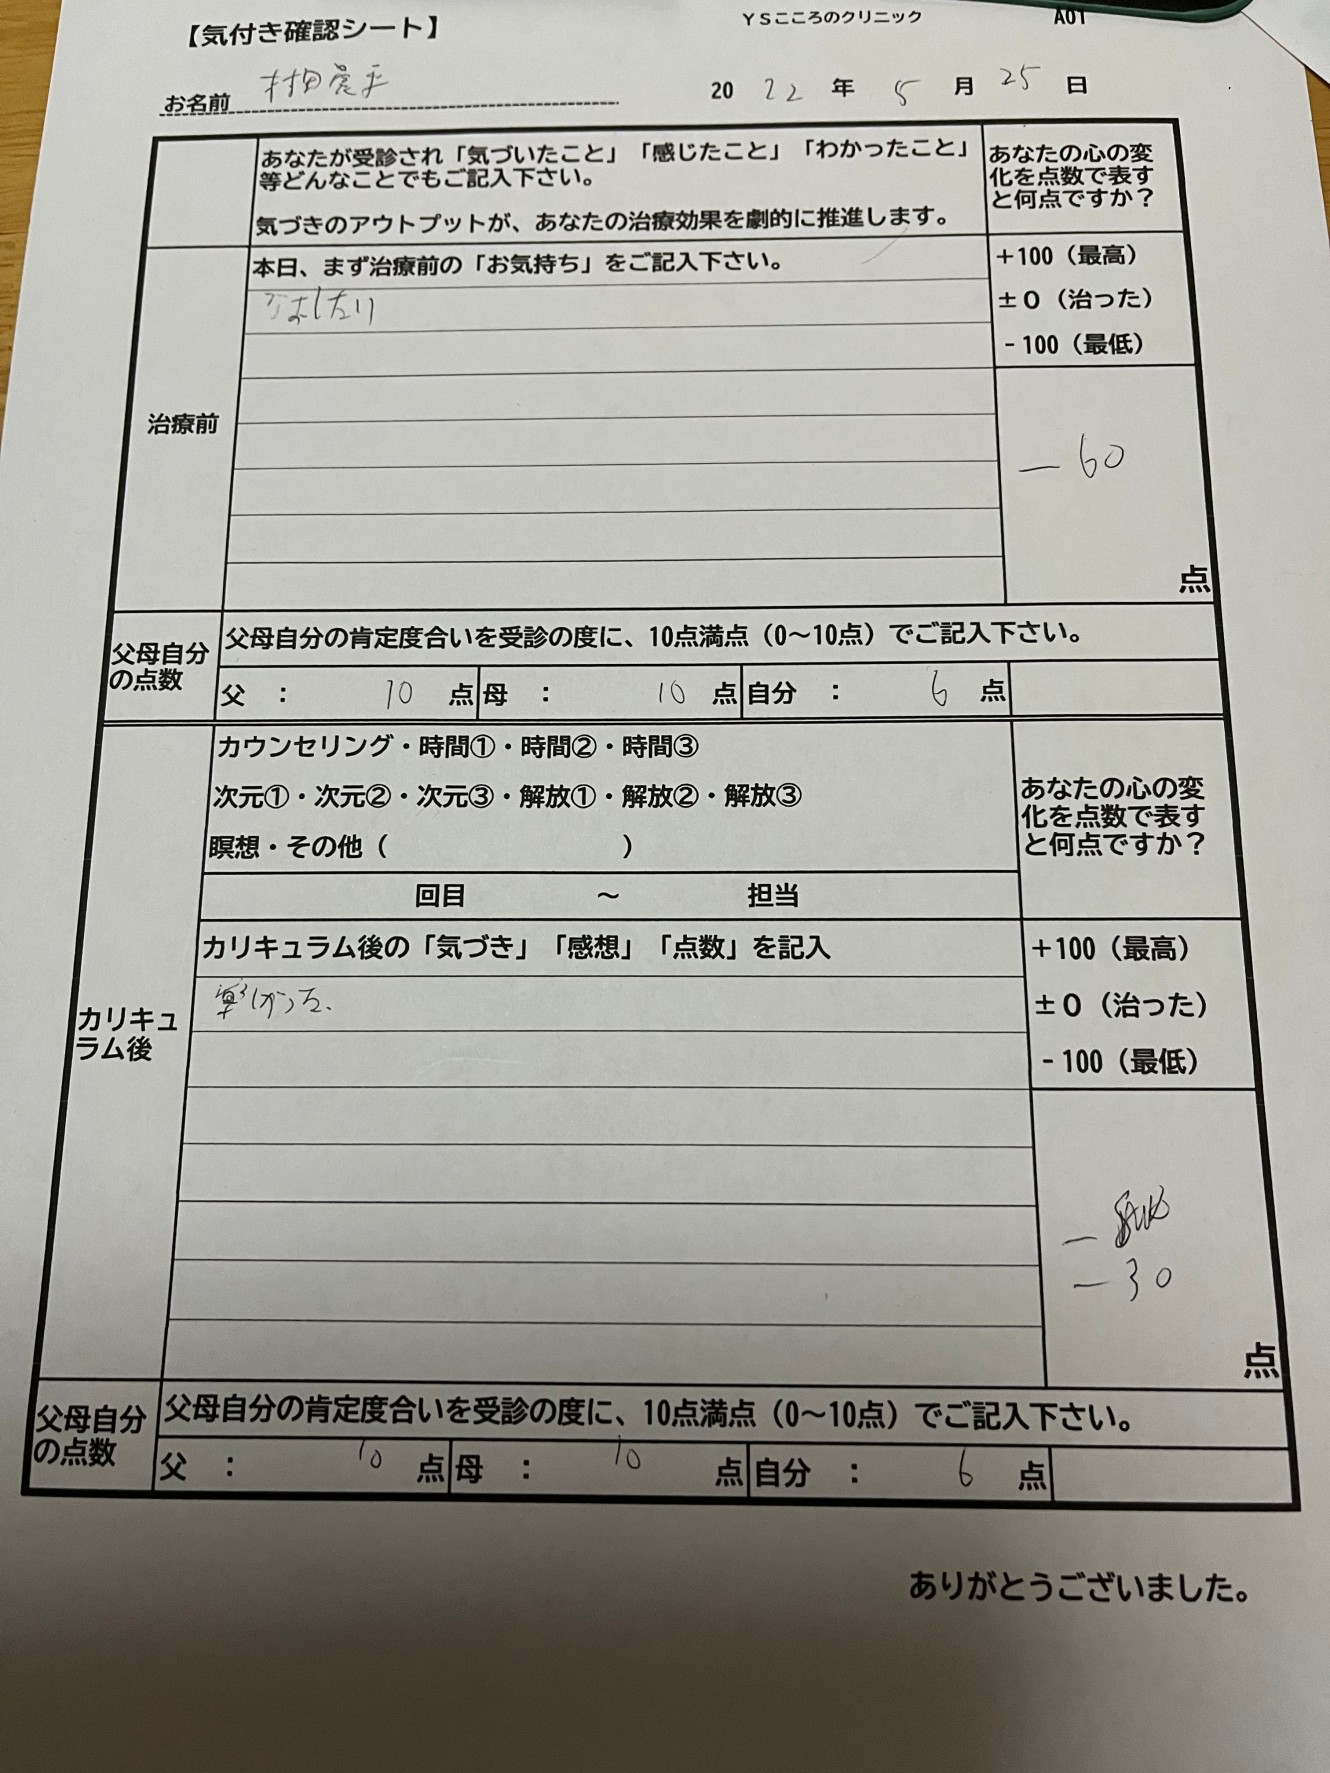 【気付き確認シート】
YSこころのクリニック
A01
お名前 村田
2022年5月25日
あなたが受診され「気づいたこと」「感じたこと」「わかったこと」
等どんなことでもご記入下さい。
気づきのアウトプットが、あなたの治療効果を劇的に推進します。
あなたの心の変
化を点数で表す
と何点ですか？
治療前
本日、まず治療前の「お気持ち」をご記入下さい。
+100（最高）
±0（治った）
-100（最低）
-60
点
父母自分
の点数
父母自分の肯定度合いを受診の度に、10点満点（0～10点）でご記入下さい。
父 : 10 点 母 : 10 点 自分 : 6 点
カリキュ
ラム後
カウンセリング・時間①・時間②・時間③
次元①・次元②・次元③・解放①・解放②・解放③
瞑想・その他（ ）
あなたの心の変
化を点数で表す
と何点ですか？
回目 ～ 担当
カリキュラム後の「気づき」「感想」「点数」を記入
楽しかった、
+100（最高）
±0（治った）
-100（最低）
-30
点
父母自分
の点数
父母自分の肯定度合いを受診の度に、10点満点（0～10点）でご記入下さい。
父 : 10 点 母 : 10 点 自分 : 6 点
ありがとうございました。